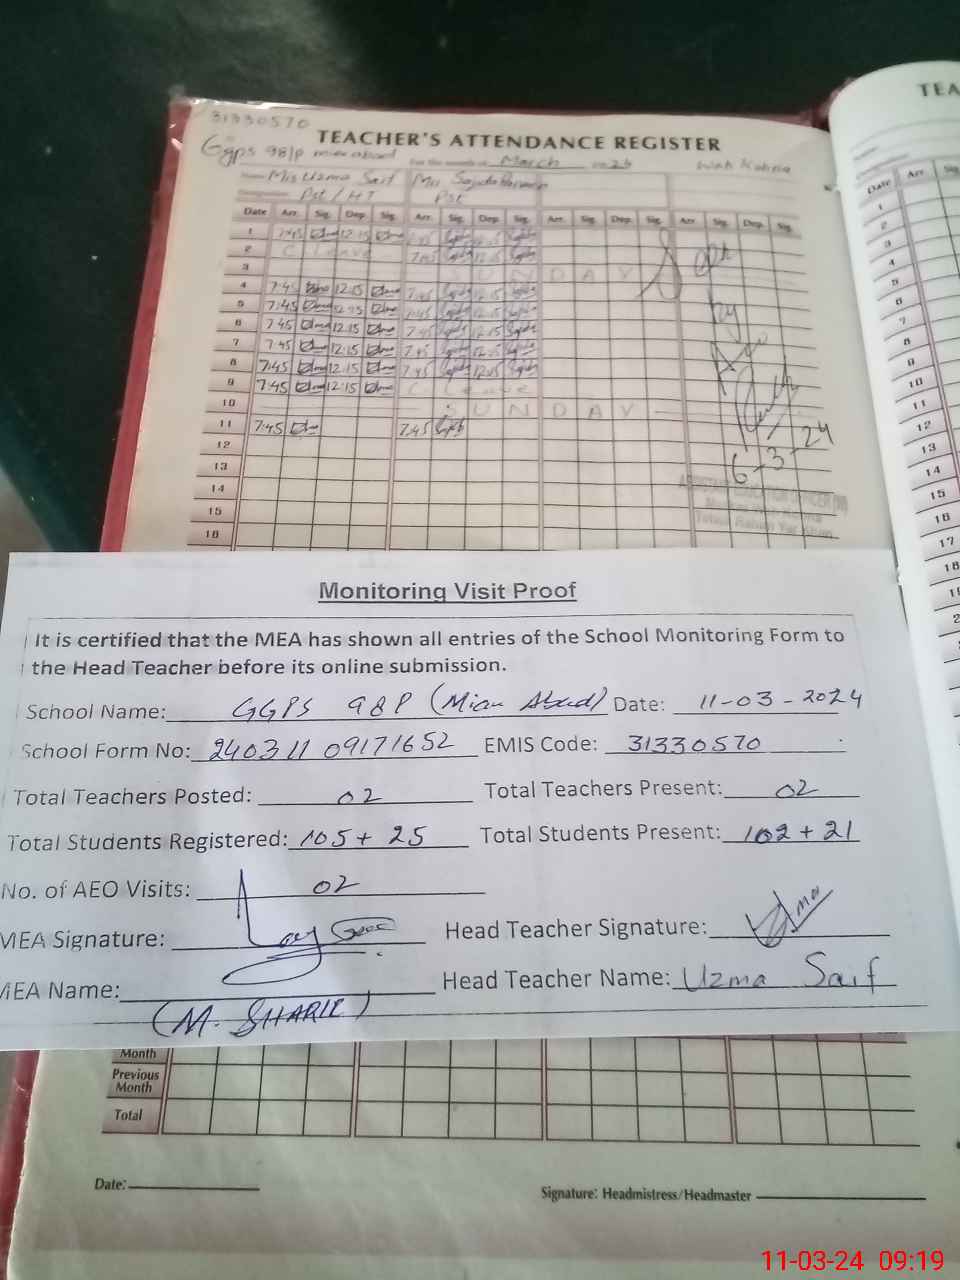 31330570
TEACHER'S ATTENDANCE REGISTER
TEA
Ggps 98/p mian abad For the month of March 2024 Wah Kohna
Name Mis Uzma Saif Mrs
Pst / HT Pst
Date Arr. Sig. Dep. Sig. Arr. Sig. Dep. Sig. Arr. Sig. Dep. Sig. Arr. Sig. Dep. Sig.
Date Arr.
1 7:45 12:15 7:45 12:15
2 C. Leave 7:45 12:15
3 SUNDAY
4 7:45 12:15 7:45 12:15
5 7:45 12:15 7:45 12:15
6 7:45 12:15 7:45 12:15
7 7:45 12:15 7:45 12:15
8 7:45 12:15 7:45 12:15
9 7:45 12:15 C. Leave
10 SUNDAY
11 7:45 7:45
12
13
14
15
16
6-3-24
1
2
3
4
5
6
7
8
9
10
11
12
13
14
15
16
17
18
Monitoring Visit Proof
It is certified that the MEA has shown all entries of the School Monitoring Form to
the Head Teacher before its online submission.
School Name: GGPS 98P (Mian Abad) Date: 11-03-2024
School Form No: 240311 09171652 EMIS Code: 31330570
Total Teachers Posted: 02 Total Teachers Present: 02
Total Students Registered: 105 + 25 Total Students Present: 102 + 21
No. of AEO Visits: 02
MEA Signature: Head Teacher Signature: Uzma
MEA Name: Head Teacher Name: Uzma Saif
(M. SHARIF)
Month
Previous
Month
Total
Date:
Signature: Headmistress/Headmaster
11-03-24 09:19